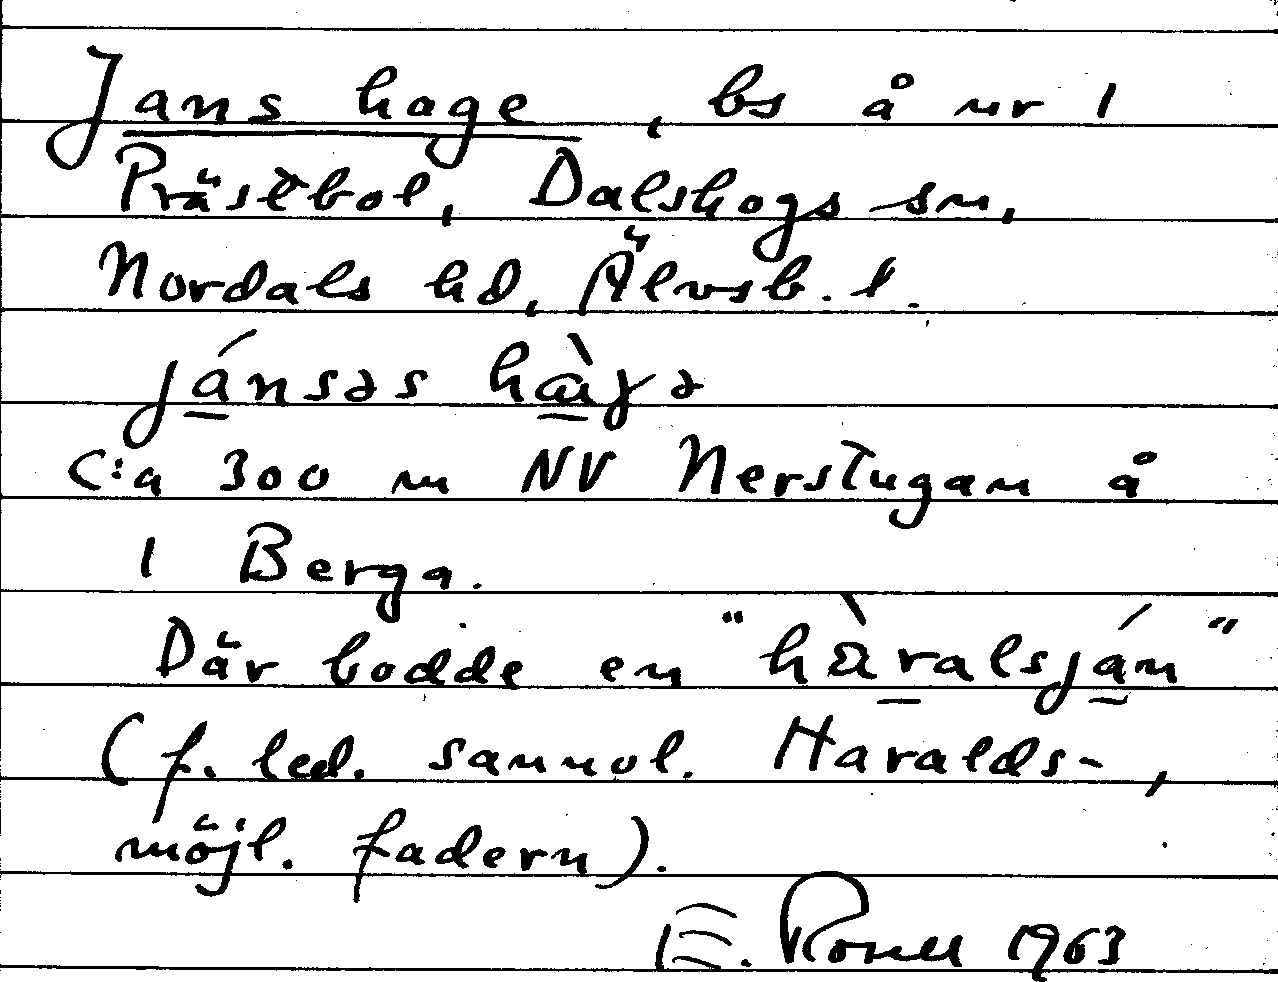 Jans hage, bs å nr 1
Prästbol, Dalskogs sn,
Nordals hd, Älvsb. l.
jánsəs hàgə
c:a 300 m NV Nerstugan å
1 Berga.
Där bodde en "hàralsján"
(f. led. sannol. Haralds-,
möjl. fadern).
E. 1963